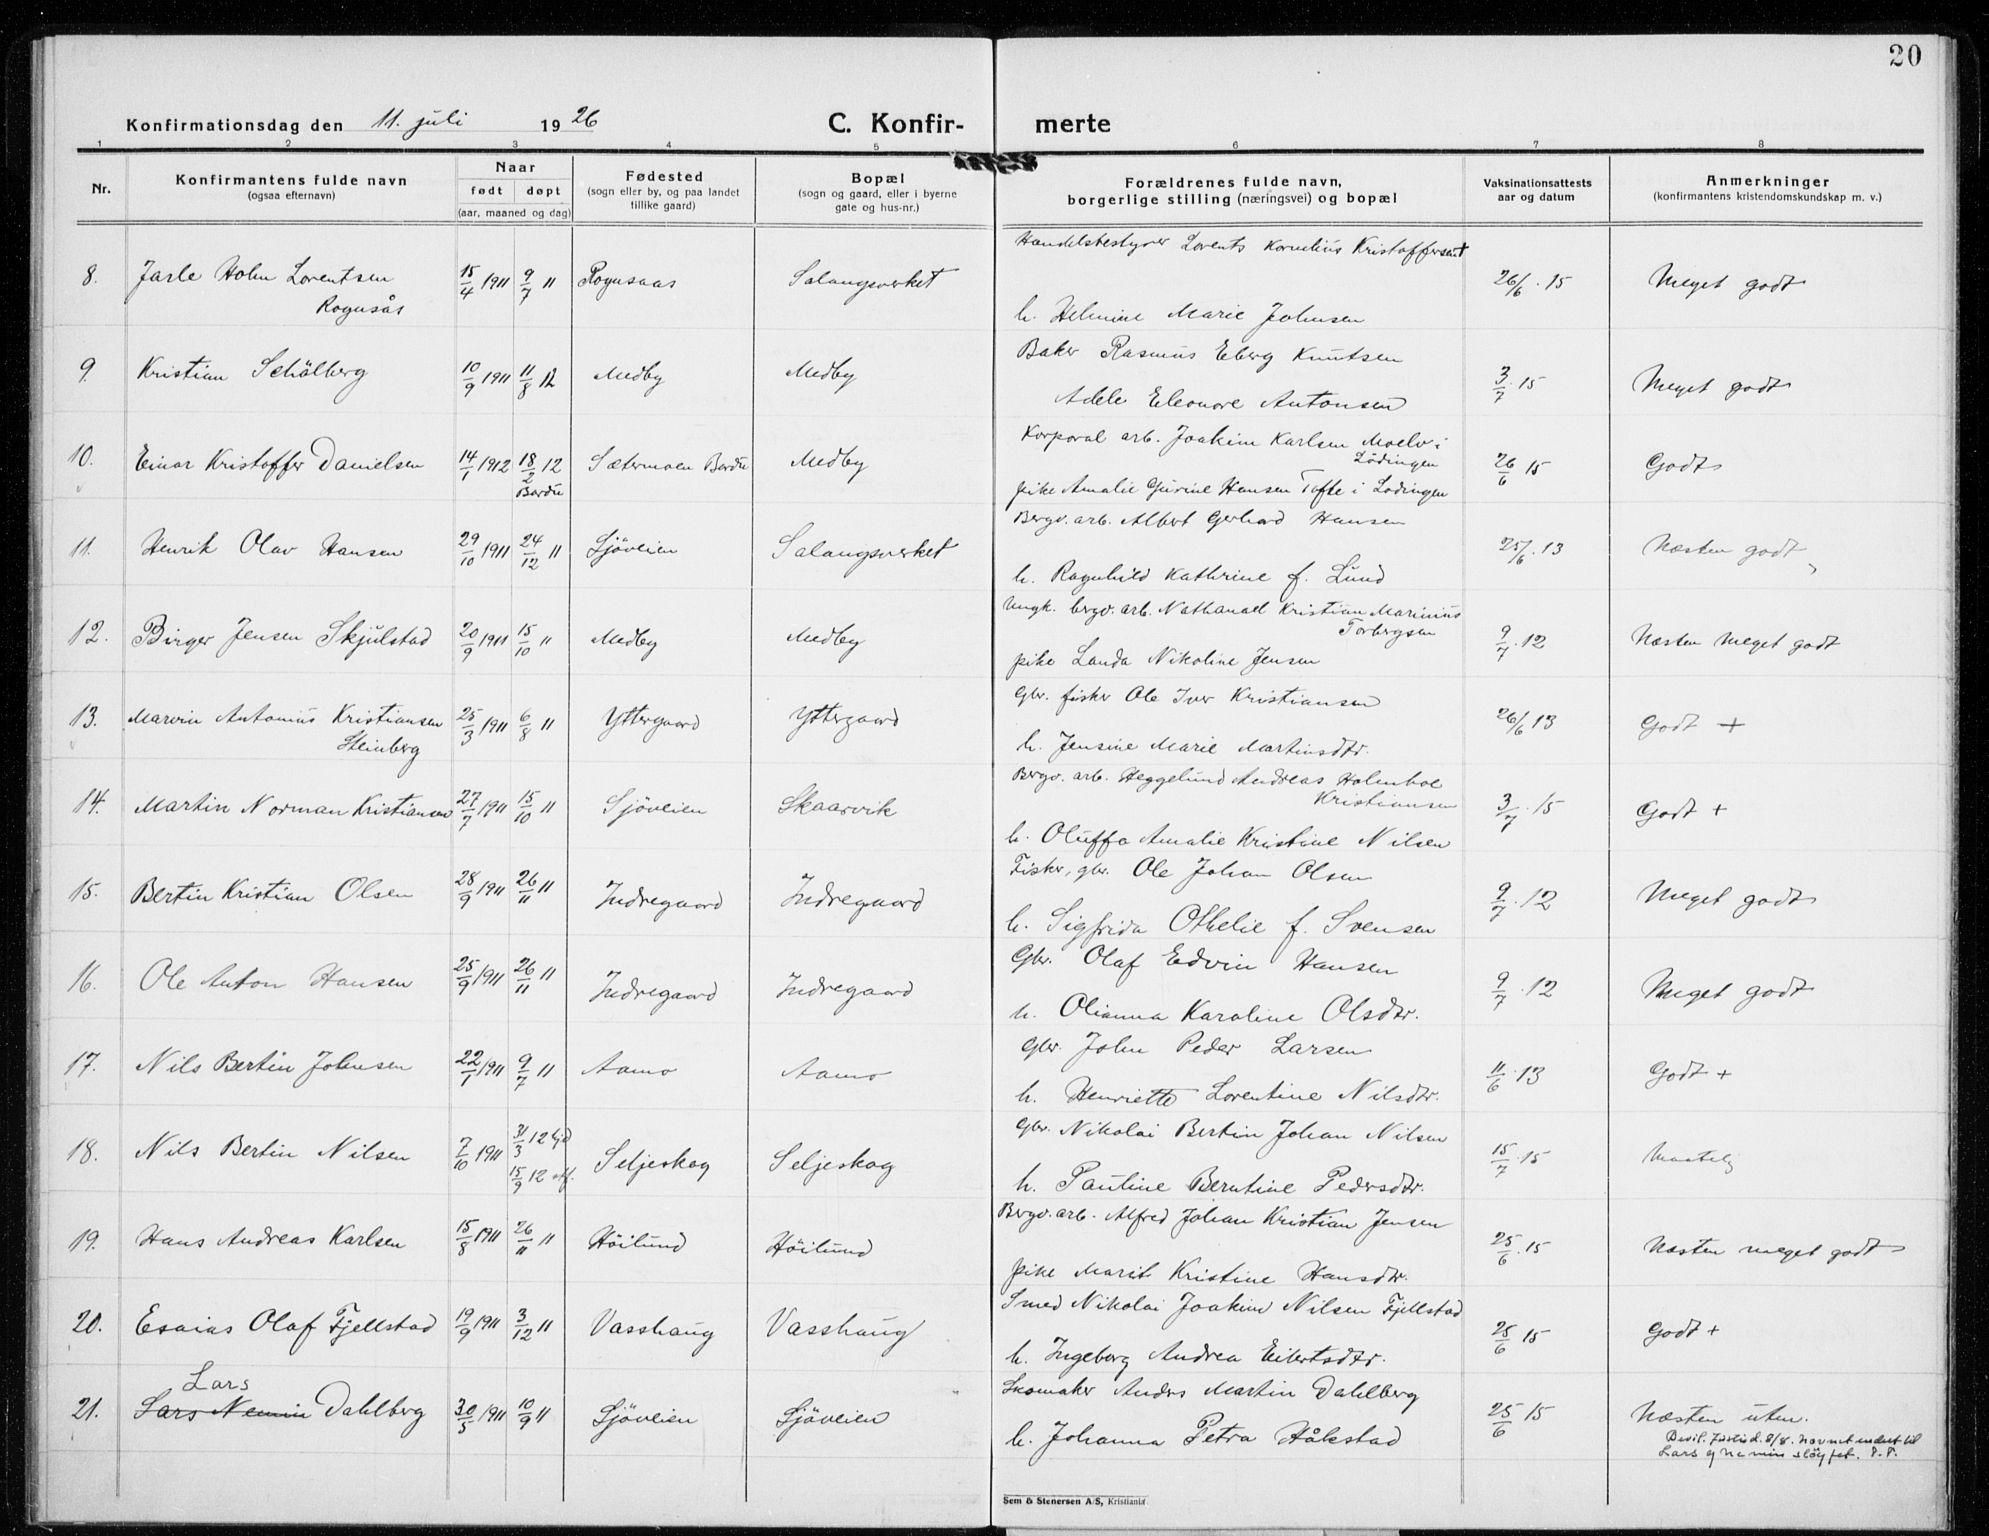 20
Konfirmationsdag den 11. juli 1926
C. Konfir- merte
1 2 3 4 5 6 7 8
Nr.
Konfirmantens fulde navn
(ogsaa efternavn)
Naar
født døpt
(aar, maaned og dag)
Fødested
(sogn eller by, og paa landet
tillike gaard)
Bopæl
(sogn og gaard, eller i byerne
gate og hus-nr.)
Forældrenes fulde navn,
borgerlige stilling (næringsvei) og bopæl
Vaksinationsattests
aar og datum
Anmerkninger
(konfirmantens kristendomskundskap m. v.)
Handelsbestyrer Lorents Kornelius Kristoffersen
8. Jarle Holm Lorentsen 15/4 1911 9/7 11 Rognsaas Salangsverket 26/6 . 15 Meget godt
Rognsås
h. Helmine Marie Johnsen
Baker Rasmus Eberg Knutsen
9. Kristian Schålberg 10/9 1911 11/8 12 Medby Medby 3/7 . 15 Meget godt
Adele Eleonore Antonsen
Korporal arb. Joakim Karlsen Moelv i
Lödingen
10. Einar Kristoffer Danielsen 14/1 1912 18/2 12 Sætermoen Bardu Medby 26/6 15 Godt
Bardu
pike Amalie Gurine Hansen Tofte i Lodingen
Bergv. arb. Albert Gerhard Hansen
11. Henrik Olav Hansen 29/10 1911 24/12 11 Sjöveien Salangsverket 25/6 . 13 Næsten godt
h. Ragnhild Kathrine f. Lund
Ungk. bergv. arb. Nathanael Kristian Marinius
Torbergsen
12. Birger Jensen Skjulstad 20/9 1911 15/10 11 Medby Medby 9/7 . 12 Næsten meget godt
pike Landa Nikoline Jensen
Gbr. fisker Ole Iver Kristiansen
13. Marvin Antonius Kristiansen 25/3 1911 6/8 11 Yttergaard Yttergaard 26/6 13 Godt +
Steinberg
h. Jensine Marie Martinsdtr.
Bergv. arb. Heggelund Andreas Holmboe
Kristiansen
14. Martin Norman Kristiansen 27/7 1911 15/10 11 Sjöveien Skaarvik 3/7 . 15 Godt +
h. Oluffa Amalie Kristine Nilsen
Fisker, gbr. Ole Johan Olsen
15. Bertin Kristian Olsen 28/9 1911 26/11 11 Indregaard Indregaard 9/7 . 12 Meget godt
h. Sigfrida Othelie f. Svensen
Gbr. Olaf Edvin Hansen
16. Ole Anton Hansen 25/9 1911 26/11 11 Indregaard Indregaard 9/7 . 12 Meget godt
h. Olianna Karoline Olsdtr.
Gbr. John Peder Larsen
17. Nils Bertin Johnsen 22/1 1911 9/7 11 Aamo Aamo 11/6 . 13 Godt +
h. Henriette Lorentine Nilsdtr.
Gbr. Nikolai Bertin Johan Nilsen
18. Nils Bertin Nilsen 7/10 1911 31/3 12 hjd Seljeskog Seljeskog 15/7 . 15 Maatelig
15/9 12 stf.
h. Pauline Berntine Pedersdtr.
Bergv. arb. Alfred Johan Kristian Jensen
19. Hans Andreas Karlsen 15/8 1911 26/11 11 Höilund Höilund 25/6 . 15 Næsten meget godt
pike Marit Kristine Hansdtr.
Smed Nikolai Joakim Nilsen Fjellstad
20. Esaias Olaf Fjellstad 19/9 1911 3/12 11 Vasshaug Vasshaug 25/6 15 Godt +
h. Ingeborg Andrea Eilertsdtr.
Lars
Skomaker Anders Martin Dahlberg
21. Lars Nemin Dahlberg 30/5 1911 10/9 11 Sjöveien Sjöveien 25/6 15 Næsten uten.
h. Johanna Petra Håkstad
Bevil. Justisd. 8/8. navnet endret til
Lars og Nemin sløyfet.
Sem & Stenersen A/S, Kristiania.